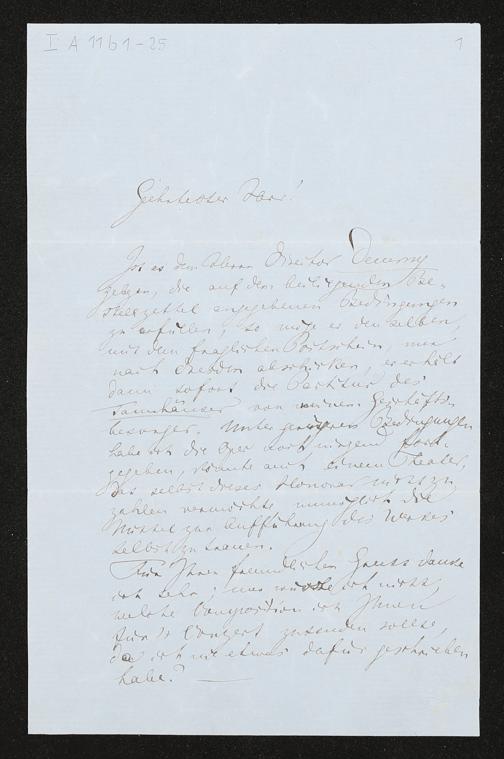 I A 11 b 1 - 25
1
Geehrtester Herr!
Ist es dem Herrn Director Denemy
gelegen, die auf dem beiliegenden Be-
stellzettel angegebenen Bedingungen
zu erfüllen, so möge er denselben,
mit dem fraglichen Postschein, nur
nach Dresden abschicken, er erhält
dann sofort die Partitur des
Tannhäuser von meinem Geschäfts-
besorger. Unter geringeren Bedingungen
habe ich die Oper noch nirgend fort
gegeben, könnte auch einem Theater,
das selbst dieses Honorar nicht zu
zahlen vermöchte unmöglich die
Mittel zur Aufführung des Werkes
selbst zu trauen.
Für Ihren freundlichen Gruss danke
ich sehr; nur wüsste ich nicht,
welche Composition ich Ihnen
für's Conzert zusenden sollte,
da ich nie etwas dafür geschrieben
habe.